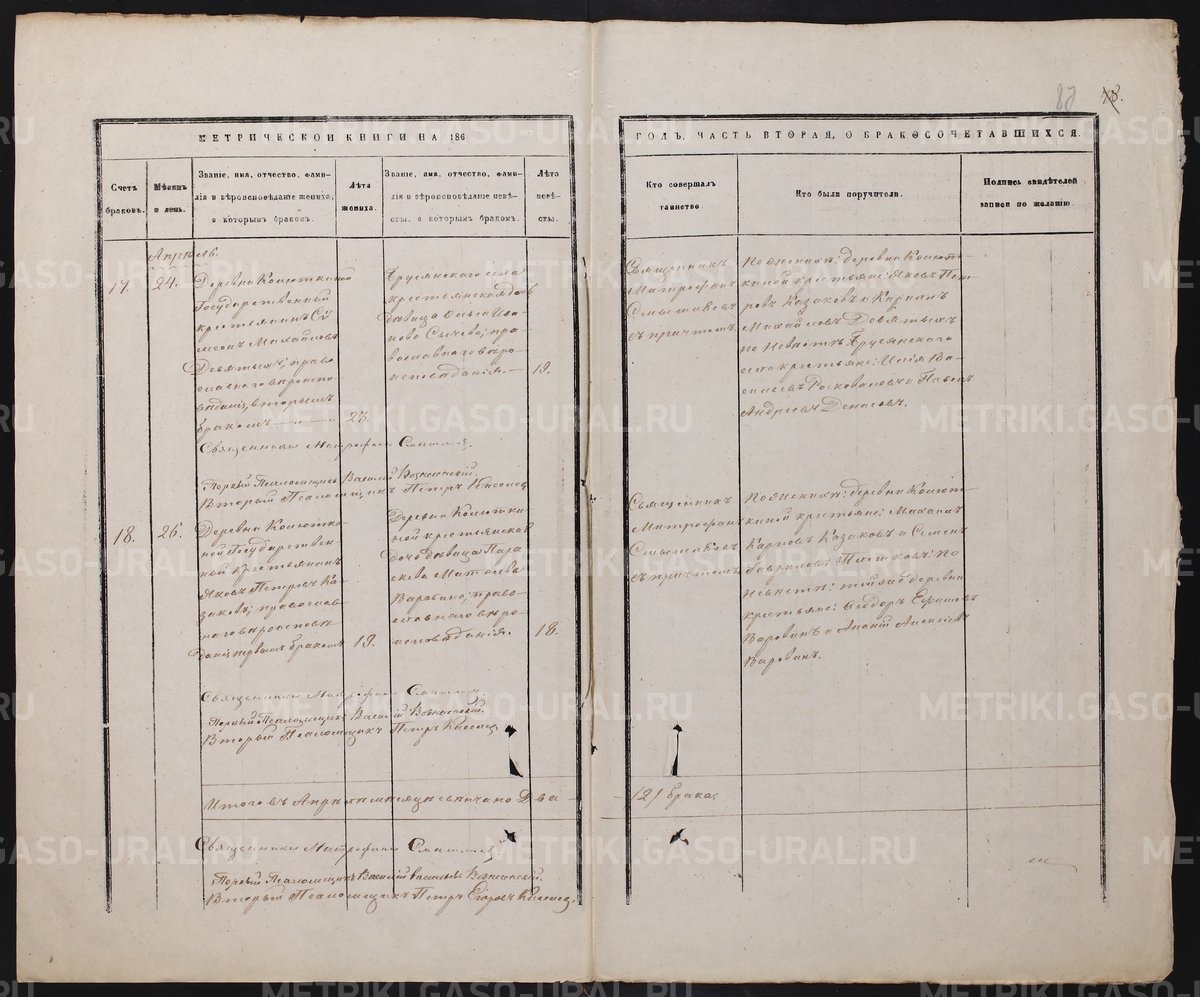 18.
МЕТРИЧЕСКОЙ КНИГИ НА 186
ГОДЪ, ЧАСТЬ ВТОРАЯ, О БРАКОСОЧЕТАВШИХСЯ.
Счетъ
браковъ.
Мѣсяцъ
и день.
Званіе, имя, отчество, фами-
лія и вѣроисповѣданіе жениха,
и которымъ бракомъ.
Лѣта
жениха.
Званіе, имя, отчество, фами-
лія и вѣроисповѣданіе невѣ-
сты, и которымъ бракомъ.
Лѣта
невѣ-
сты.
Кто совершалъ
таинство.
Кто были поручители.
Подпись свидѣтелей
записи по желанію
Апрѣль.
17.
24.
Деревни Колюткиной
Государственный
крестьянинъ Си
меонъ Михайловъ
Девятыхъ; право
славнаго вѣроиспо
вѣданія, вторымъ
бракомъ
23.
Брусянского села
крестьянская дочь
дѣвица Ольга Ива
нова Сычева; пра
вославнаго вѣро
исповѣданія.—
19.
Священникъ
Митрофанъ
Смышляевъ
съ причтомъ.
По женихѣ: деревни Колют
киной крестьяне: Яковъ Пет
ровъ Казаковъ и Карпъ
Михайловъ Девятыхъ
по невѣстѣ Брусянского
села крестьяне: Илія Ва-
сильевъ и Павелъ
Андреевъ Денисовъ.
Священникъ Митрофанъ
Первый Псаломщикъ Василій Вознесенскій.
Второй Псаломщикъ Петръ Киселевъ
18.
26.
Деревни Колютки-
ной Государствен-
ный крестьянинъ
Яковъ Петровъ Ка-
заковъ; православ-
наго вѣроисповѣ
данія, первымъ бракомъ
19.
Деревни Колютки
ной крестьянская
дочь дѣвица Пара
скева Матѳеева
Варовина; право-
славнаго вѣро
исповѣданія.
18.
Священникъ
Митрофанъ
Смышляевъ
съ причтомъ.
По женихѣ: деревни Колют
киной крестьяне: Михаилъ
Карповъ Казаковъ и Семенъ
Гавриловъ по
невѣстѣ: той же деревни
крестьяне: Ѳедоръ Ефимовъ
Варовинъ и Ананій Алексѣевъ
Варовинъ.
Священникъ Митрофанъ
Первый Псаломщикъ Василій Вознесенскій.
Второй Псаломщикъ Петръ Киселевъ
Итого въ Апрѣлѣ мѣсяцѣ вѣнчано Два
/2/ брака.
Священникъ Митрофанъ
Первый Псаломщикъ Василій Васильевъ Вознесенскій.
Второй Псаломщикъ Петръ Егоровъ Киселевъ.
METRIKI.GASO-URAL.RU